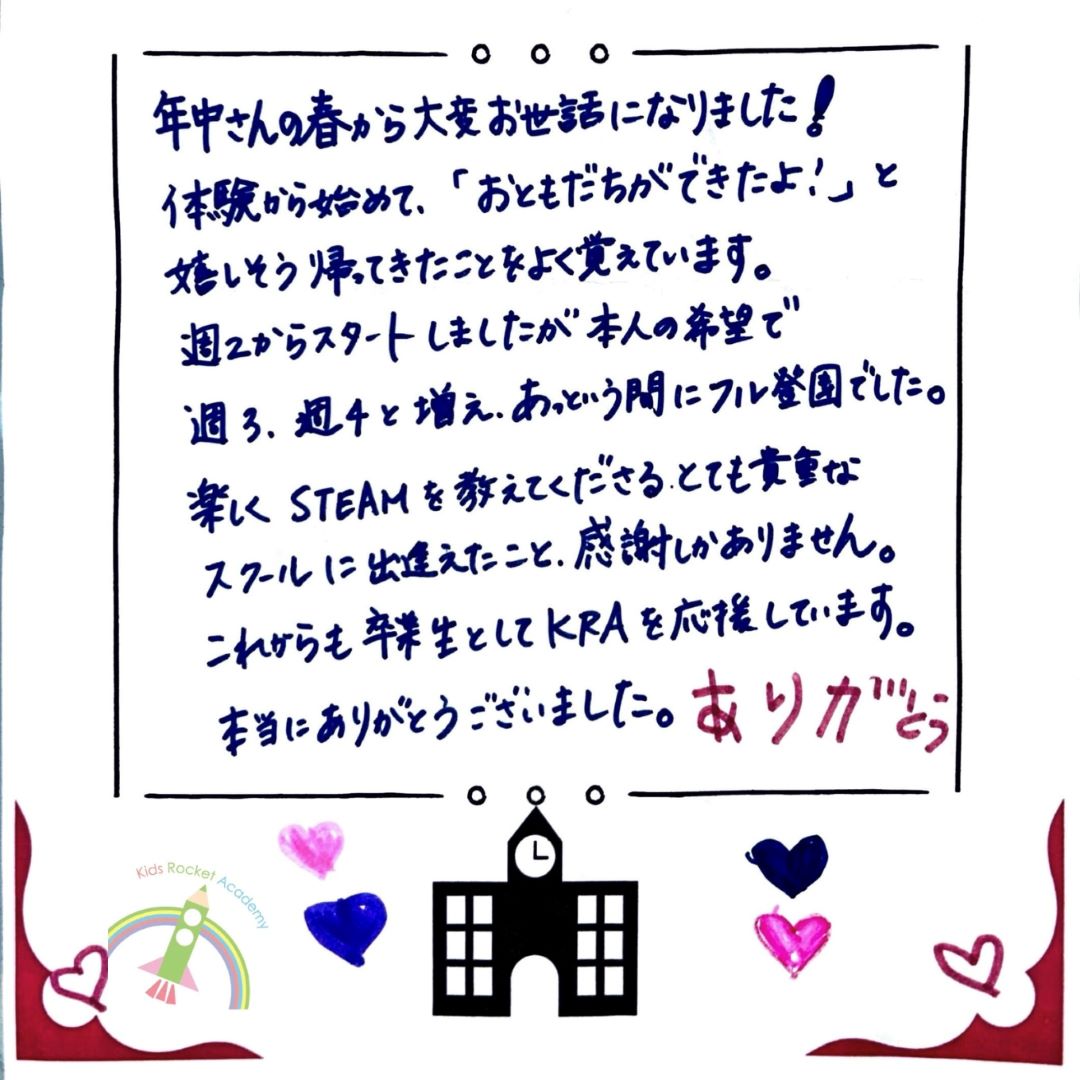 年中さんの春から大変お世話になりました!
体験から始めて、「おともだちができたよ!」と
嬉しそう帰ってきたことをよく覚えています。
週2からスタートしましたが本人の希望で
週3、週4と増え、あっという間にフル登園でした。
楽しくSTEAMを教えてくださる、とても貴重な
スクールに出逢えたこと、感謝しかありません。
これからも卒業生としてKRAを応援しています。
本当にありがとうございました。ありがとう
Kids Rocket Academy